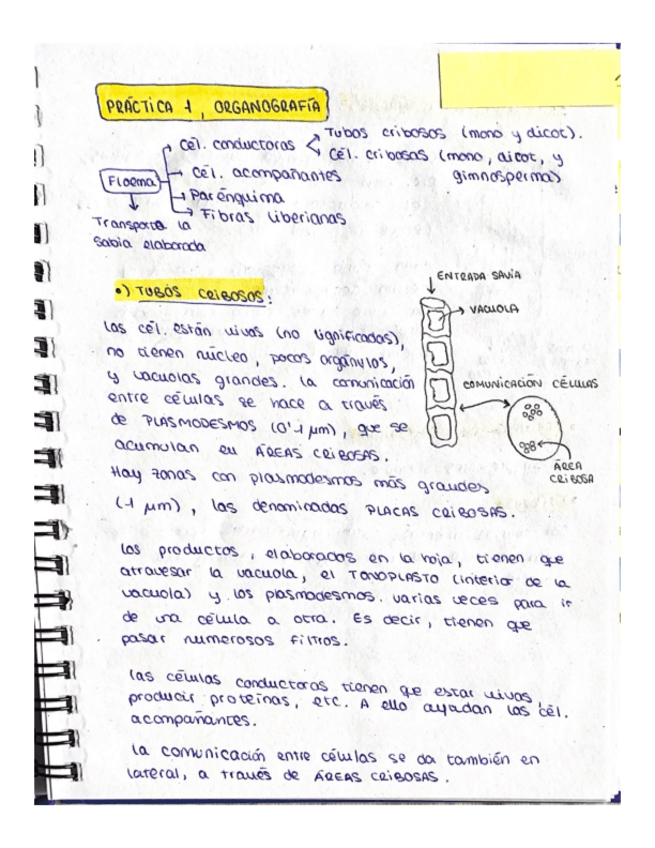 PRÁCTICA 1, ORGANOGRAFÍA
Floema
Cél. conductoras
Tubos cribosos (mono y dicot).
Cél. cribosas (mono, dicot, y gimnospermas)
Cél. acompañantes
Parénquima
Fibras liberianas
Transporta la
sabia elaborada
•) TUBOS CRIBOSOS:
Las cél. están vivas (no lignificadas),
no tienen núcleo, pocos orgánulos,
y vacuolas grandes. La comunicación
entre células se hace a través
de PLASMODESMOS (0'1 μm), que se
acumulan en ÁREAS CRIBOSAS.
Hay zonas con plasmodesmos más grandes
(1 μm), las denominadas PLACAS CRIBOSAS.
ENTRADA SAVIA
VACUOLA
COMUNICACIÓN CÉLULAS
ÁREA
CRIBOSA
Los productos, elaborados en la hoja, tienen que
atravesar la vacuola, el TONOPLASTO (interior de la
vacuola) y los plasmodesmos varias veces para ir
de una célula a otra. Es decir, tienen que
pasar numerosos filtros.
Las células conductoras tienen que estar vivas,
producir proteínas, etc. A ello ayudan las cél.
acompañantes.
La comunicación entre células se da también en
lateral, a través de ÁREAS CRIBOSAS.